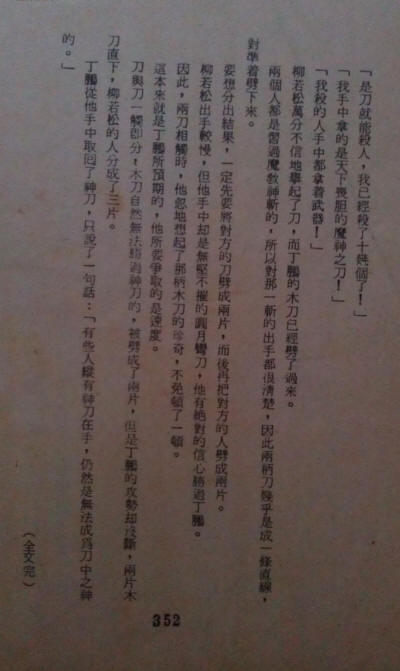 「是刀就能殺人，我已經殺了十幾個了！」
「我手中拿的是天下畏胆的魔神之刀！」
「我殺的人手中都拿着武器！」
柳若松萬分不信地舉起了刀，而丁鵬的木刀已經劈了過來。
兩個人都是習過魔教神斬的，所以對那一斬的出手都很清楚，因此兩柄刀幾乎是成一條直線，
對準着劈下來。
要想分出結果，一定先要將對方的刀劈成兩片，而後再把對方的人劈成兩片。
柳若松出手較慢，但他手中却是無堅不摧的圓月彎刀，他有絕對的信心勝過丁鵬。
因此，兩刀相觸時，他忽地想起了那柄木刀的珍奇，不免頓了一頓。
這本來就是丁鵬所預期的，他所要爭取的是速度。
刀與刀一觸即分，木刀自然無法勝過神刀的，被劈成了兩片，但是丁鵬的攻勢却沒斷，兩片木
刀直下，柳若松的人分成了三片。
丁鵬從他手中取回了神刀，只說了一句話：「有些人縱有神刀在手，仍然是無法成爲刀中之神
的。」
（全文完）
352